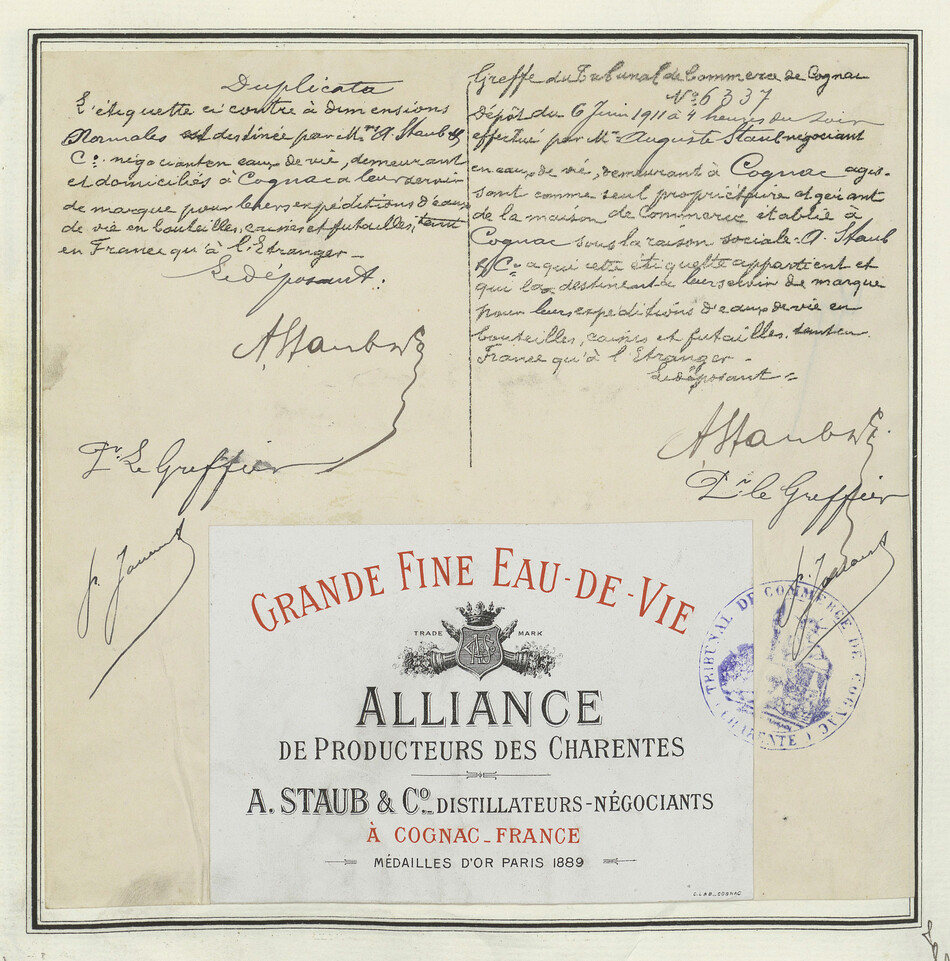 Duplicata
L'étiquette ci contre à dimensions
Normales est destinée par Mrs A. Staub &
Co. négociant en eaux de vie, demeurant
et domiciliés à Cognac a leur servir
de marque pour leurs expéditions d'eaux
de vie en bouteilles, caisses et futailles, tant
en France qu'à l'Etranger _
Le déposant:
AStaub & Co
Pr. Le Greffier
Greffe du Tribunal de Commerce de Cognac
No 6337
Dépôt du 6 Juin 1911 à 4 heures du soir
effectué par Mr Auguste Staub négociant
en eaux de vie, demeurant à Cognac agis-
sant comme seul propriétaire et gérant
de la maison de Commerce établie à
Cognac sous la raison sociale A. Staub
& Co a qui cette étiquette appartient et
qui la destinent a leur servir de marque
pour leurs expéditions d'eaux de vie en
bouteilles, caisses et futailles. tant en
France qu'à l'Etranger _
Le déposant =
AStaub & Co
Pr. le Greffier
GRANDE FINE EAU-DE-VIE
TRADE MARK
ALLIANCE
DE PRODUCTEURS DES CHARENTES
A. STAUB & Co. DISTILLATEURS-NÉGOCIANTS
À COGNAC_FRANCE
MÉDAILLES D'OR PARIS 1889
TRIBUNAL DE COMMERCE DE COGNAC
(CHARENTE)